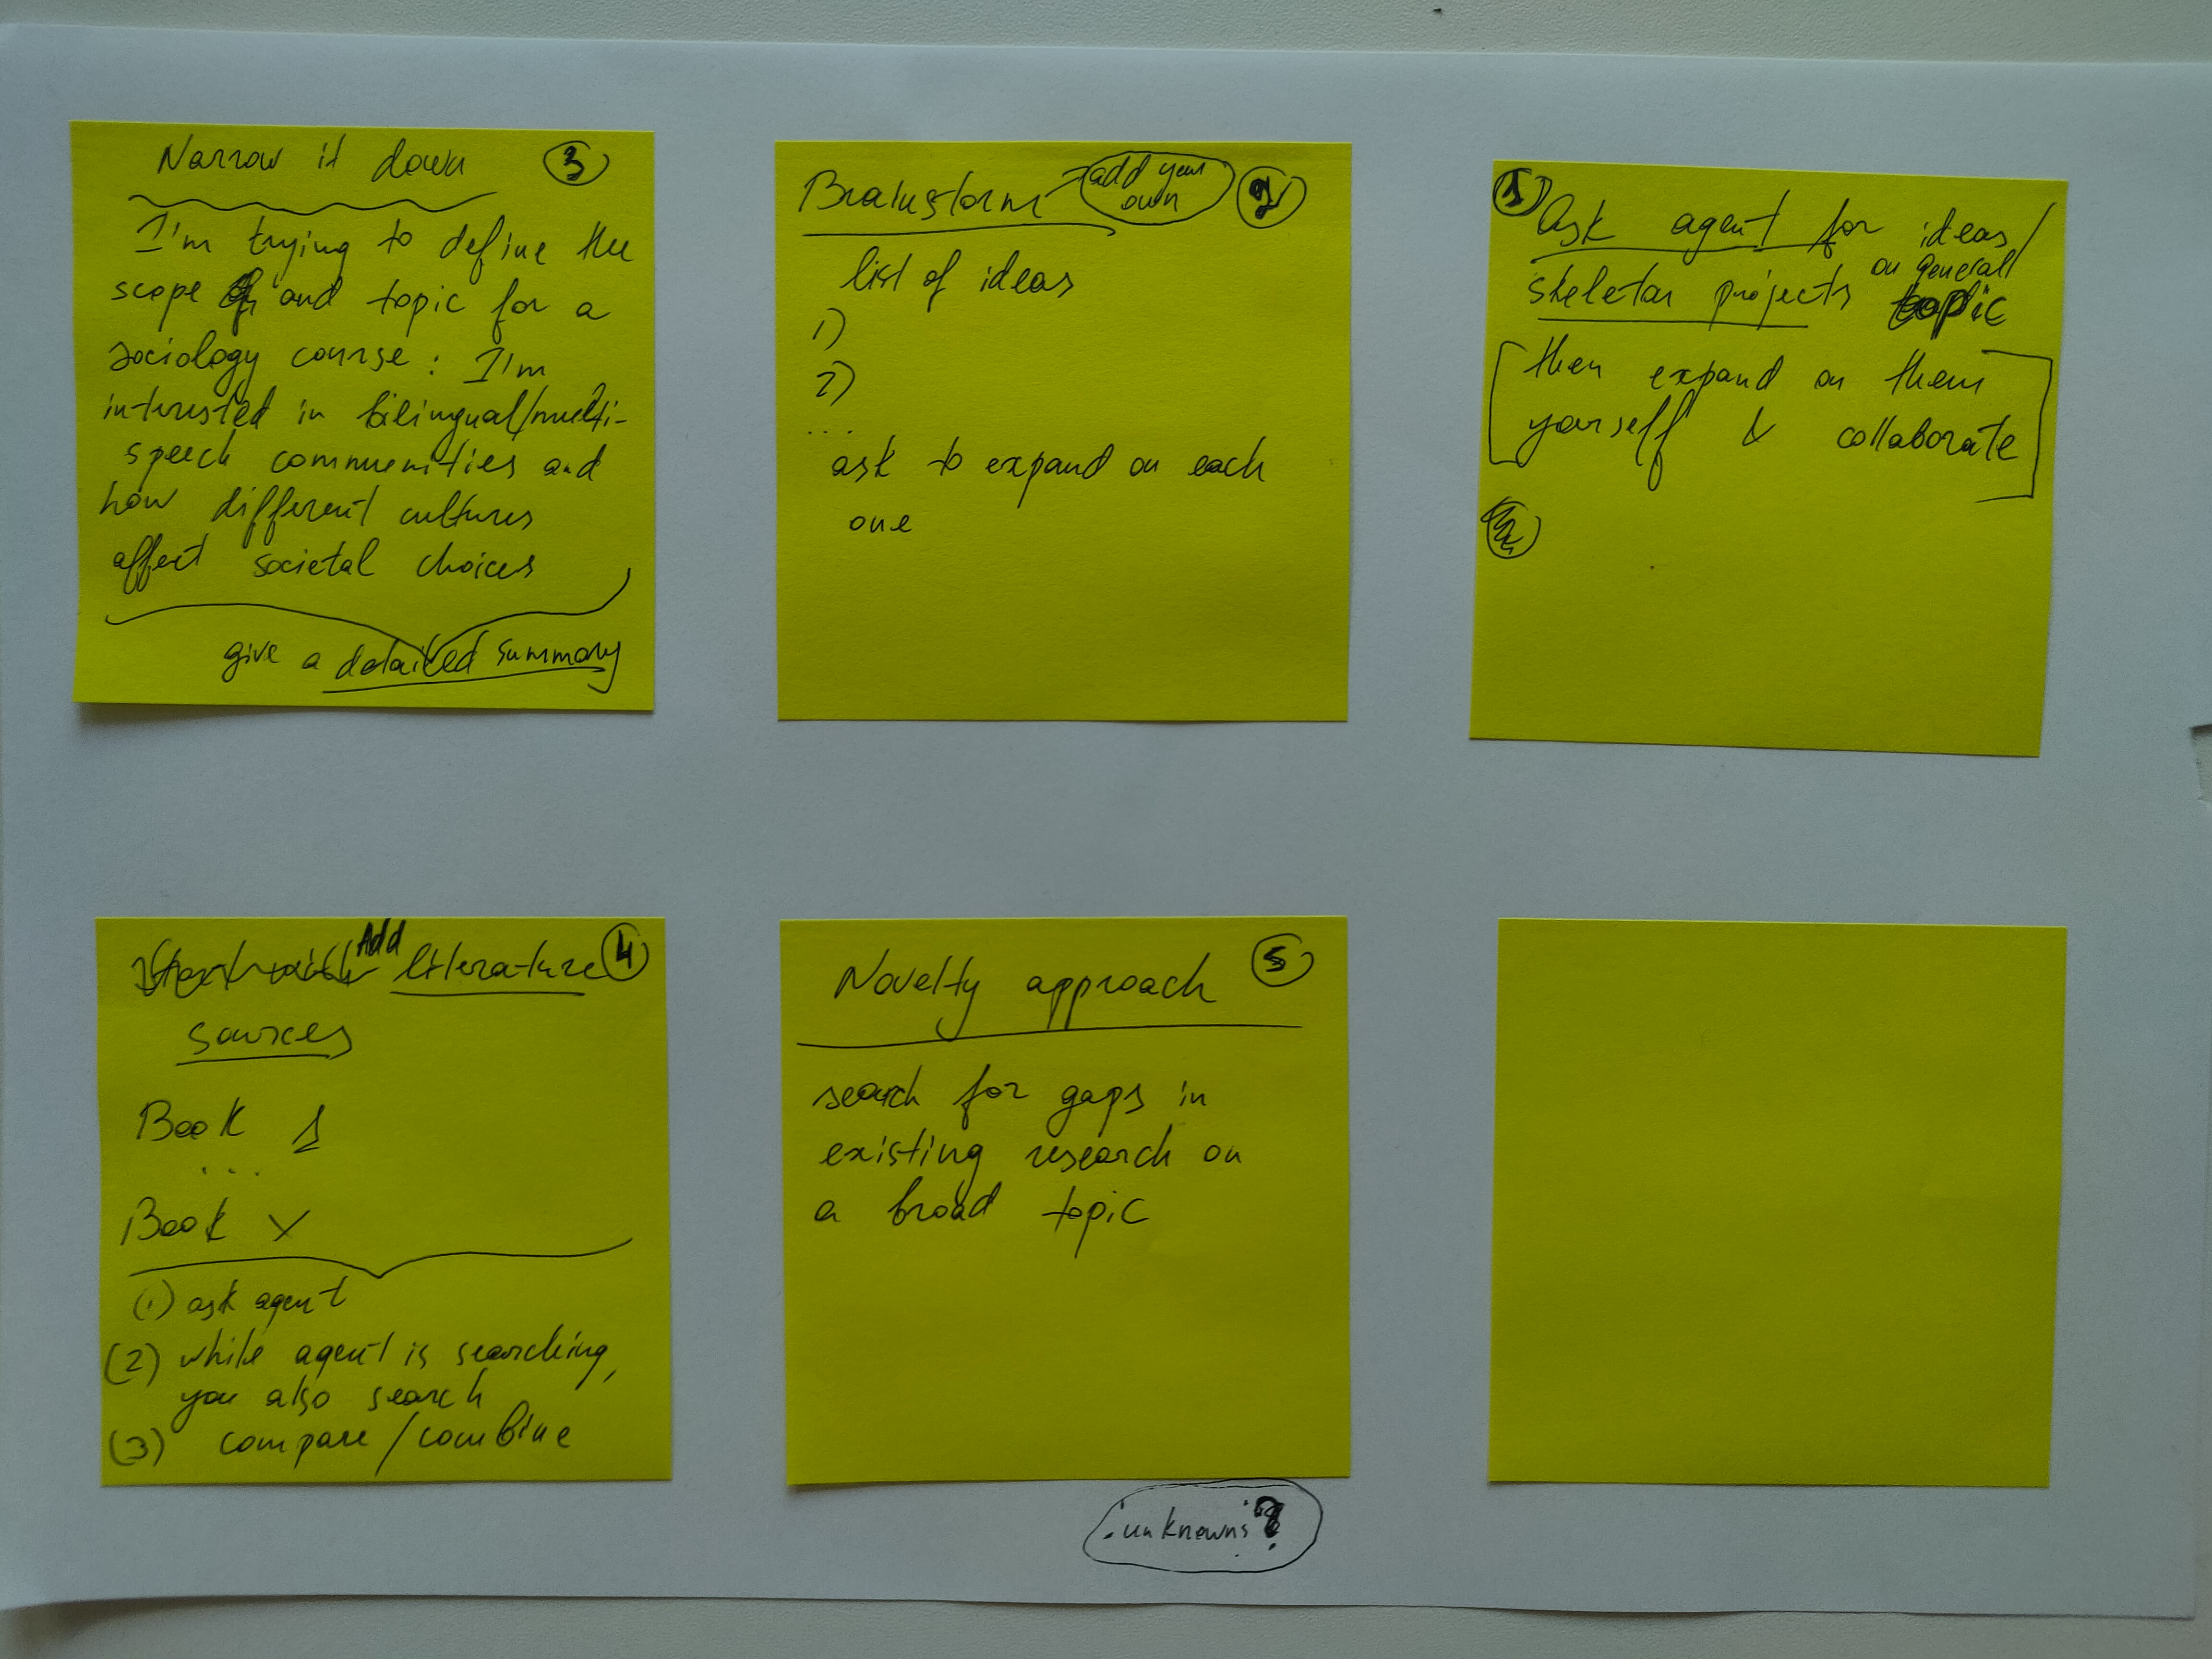 Narrow it down 3
I'm trying to define the
scope and topic for a
sociology course: I'm
interested in bilingual/multi-
speech communities and
how different cultures
affect societal choices
give a detailed summary
Brainstorm add your own 2
list of ideas
1)
2)
...
ask to expand on each
one
1 Ask agent for ideas/
skeletar projects on general topic
[then expand on them
yourself & collaborate]
Add literature 4
sources
Book 1
...
Book X
(1) ask agent
(2) while agent is searching,
you also search
(3) compare/combine
Novelty approach 5
search for gaps in
existing research on
a broad topic
unknowns?